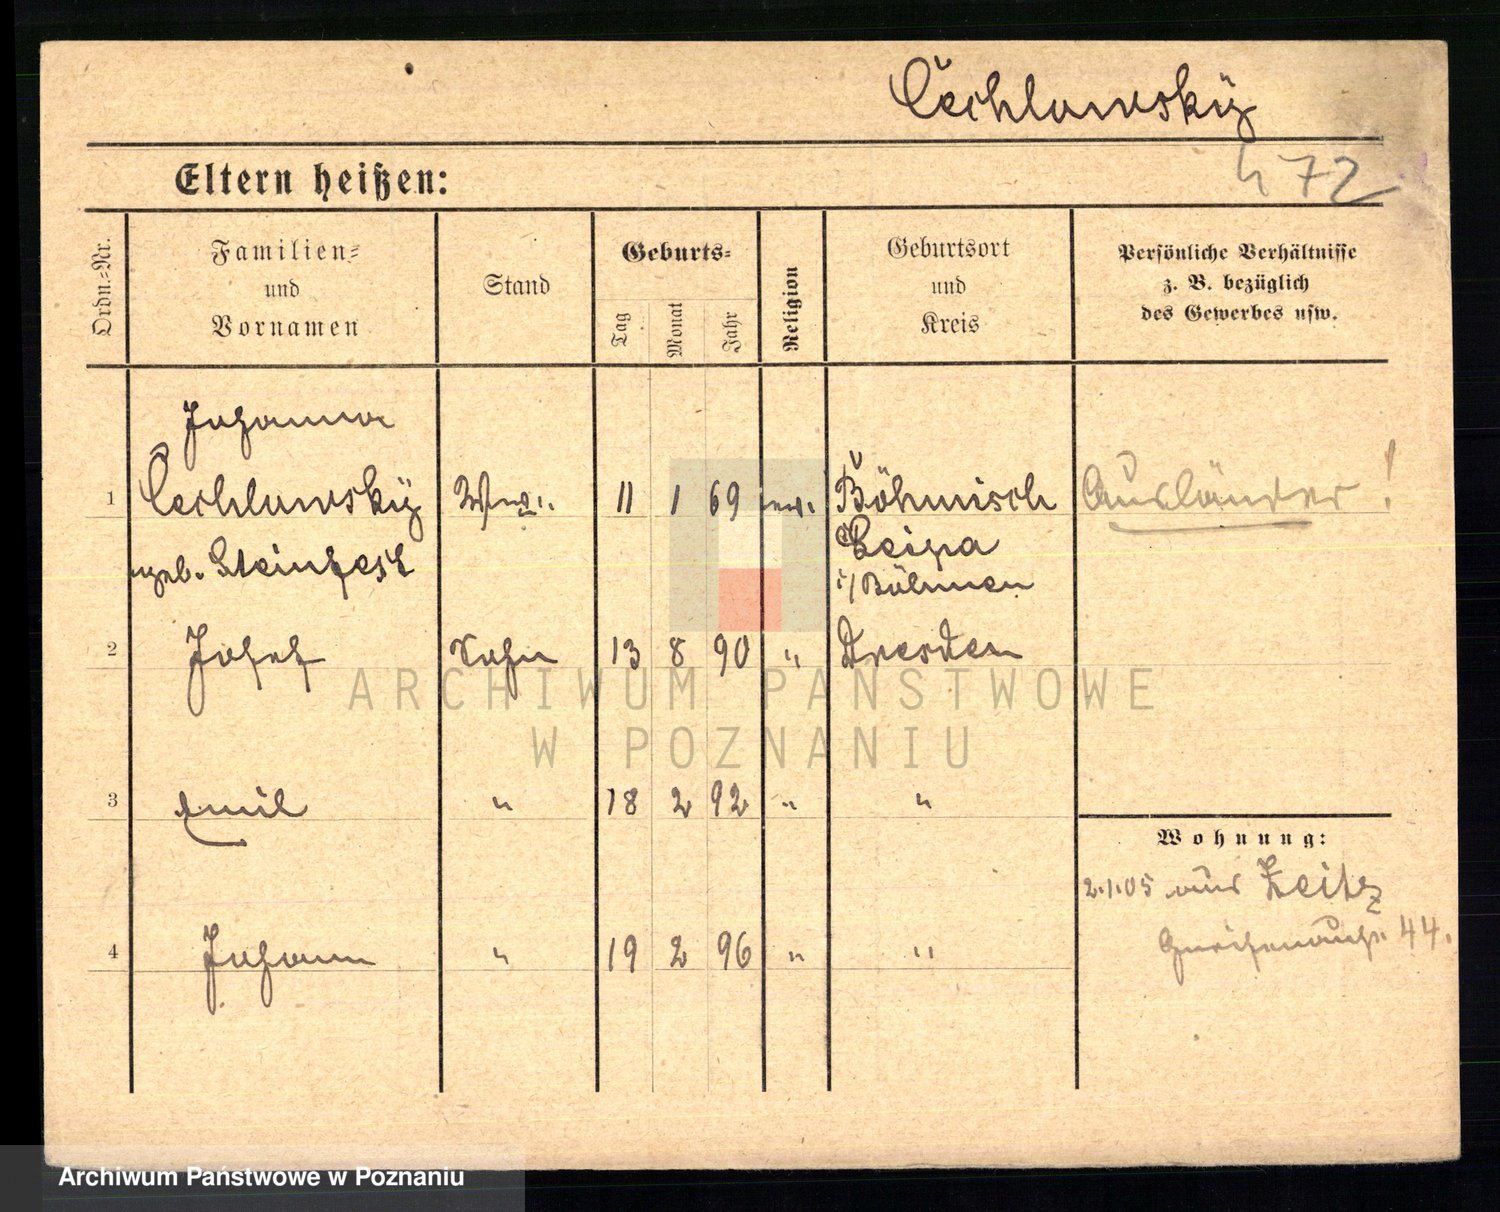 Čechlawsky
472
Eltern heißen:
Ordn.-Nr.
Familien-
und
Vornamen
Stand
Geburts-
Tag
Monat
Jahr
Religion
Geburtsort
und
Kreis
Persönliche Verhältnisse
z. B. bezüglich
des Gewerbes usw.
Johanna
1 Čechlawsky Wwe. 11 1 69 ev. Böhmisch Ausländer!
geb. Leipa
i/Böhmen
2 Josef Sohn 13 8 90 " Dresden
3 Emil " 18 2 92 " "
Wohnung:
2.1.05 aus Zeitz
44.
4 Johann " 19 2 96 " "
ARCHIWUM PAŃSTWOWE
W POZNANIU
Archiwum Państwowe w Poznaniu